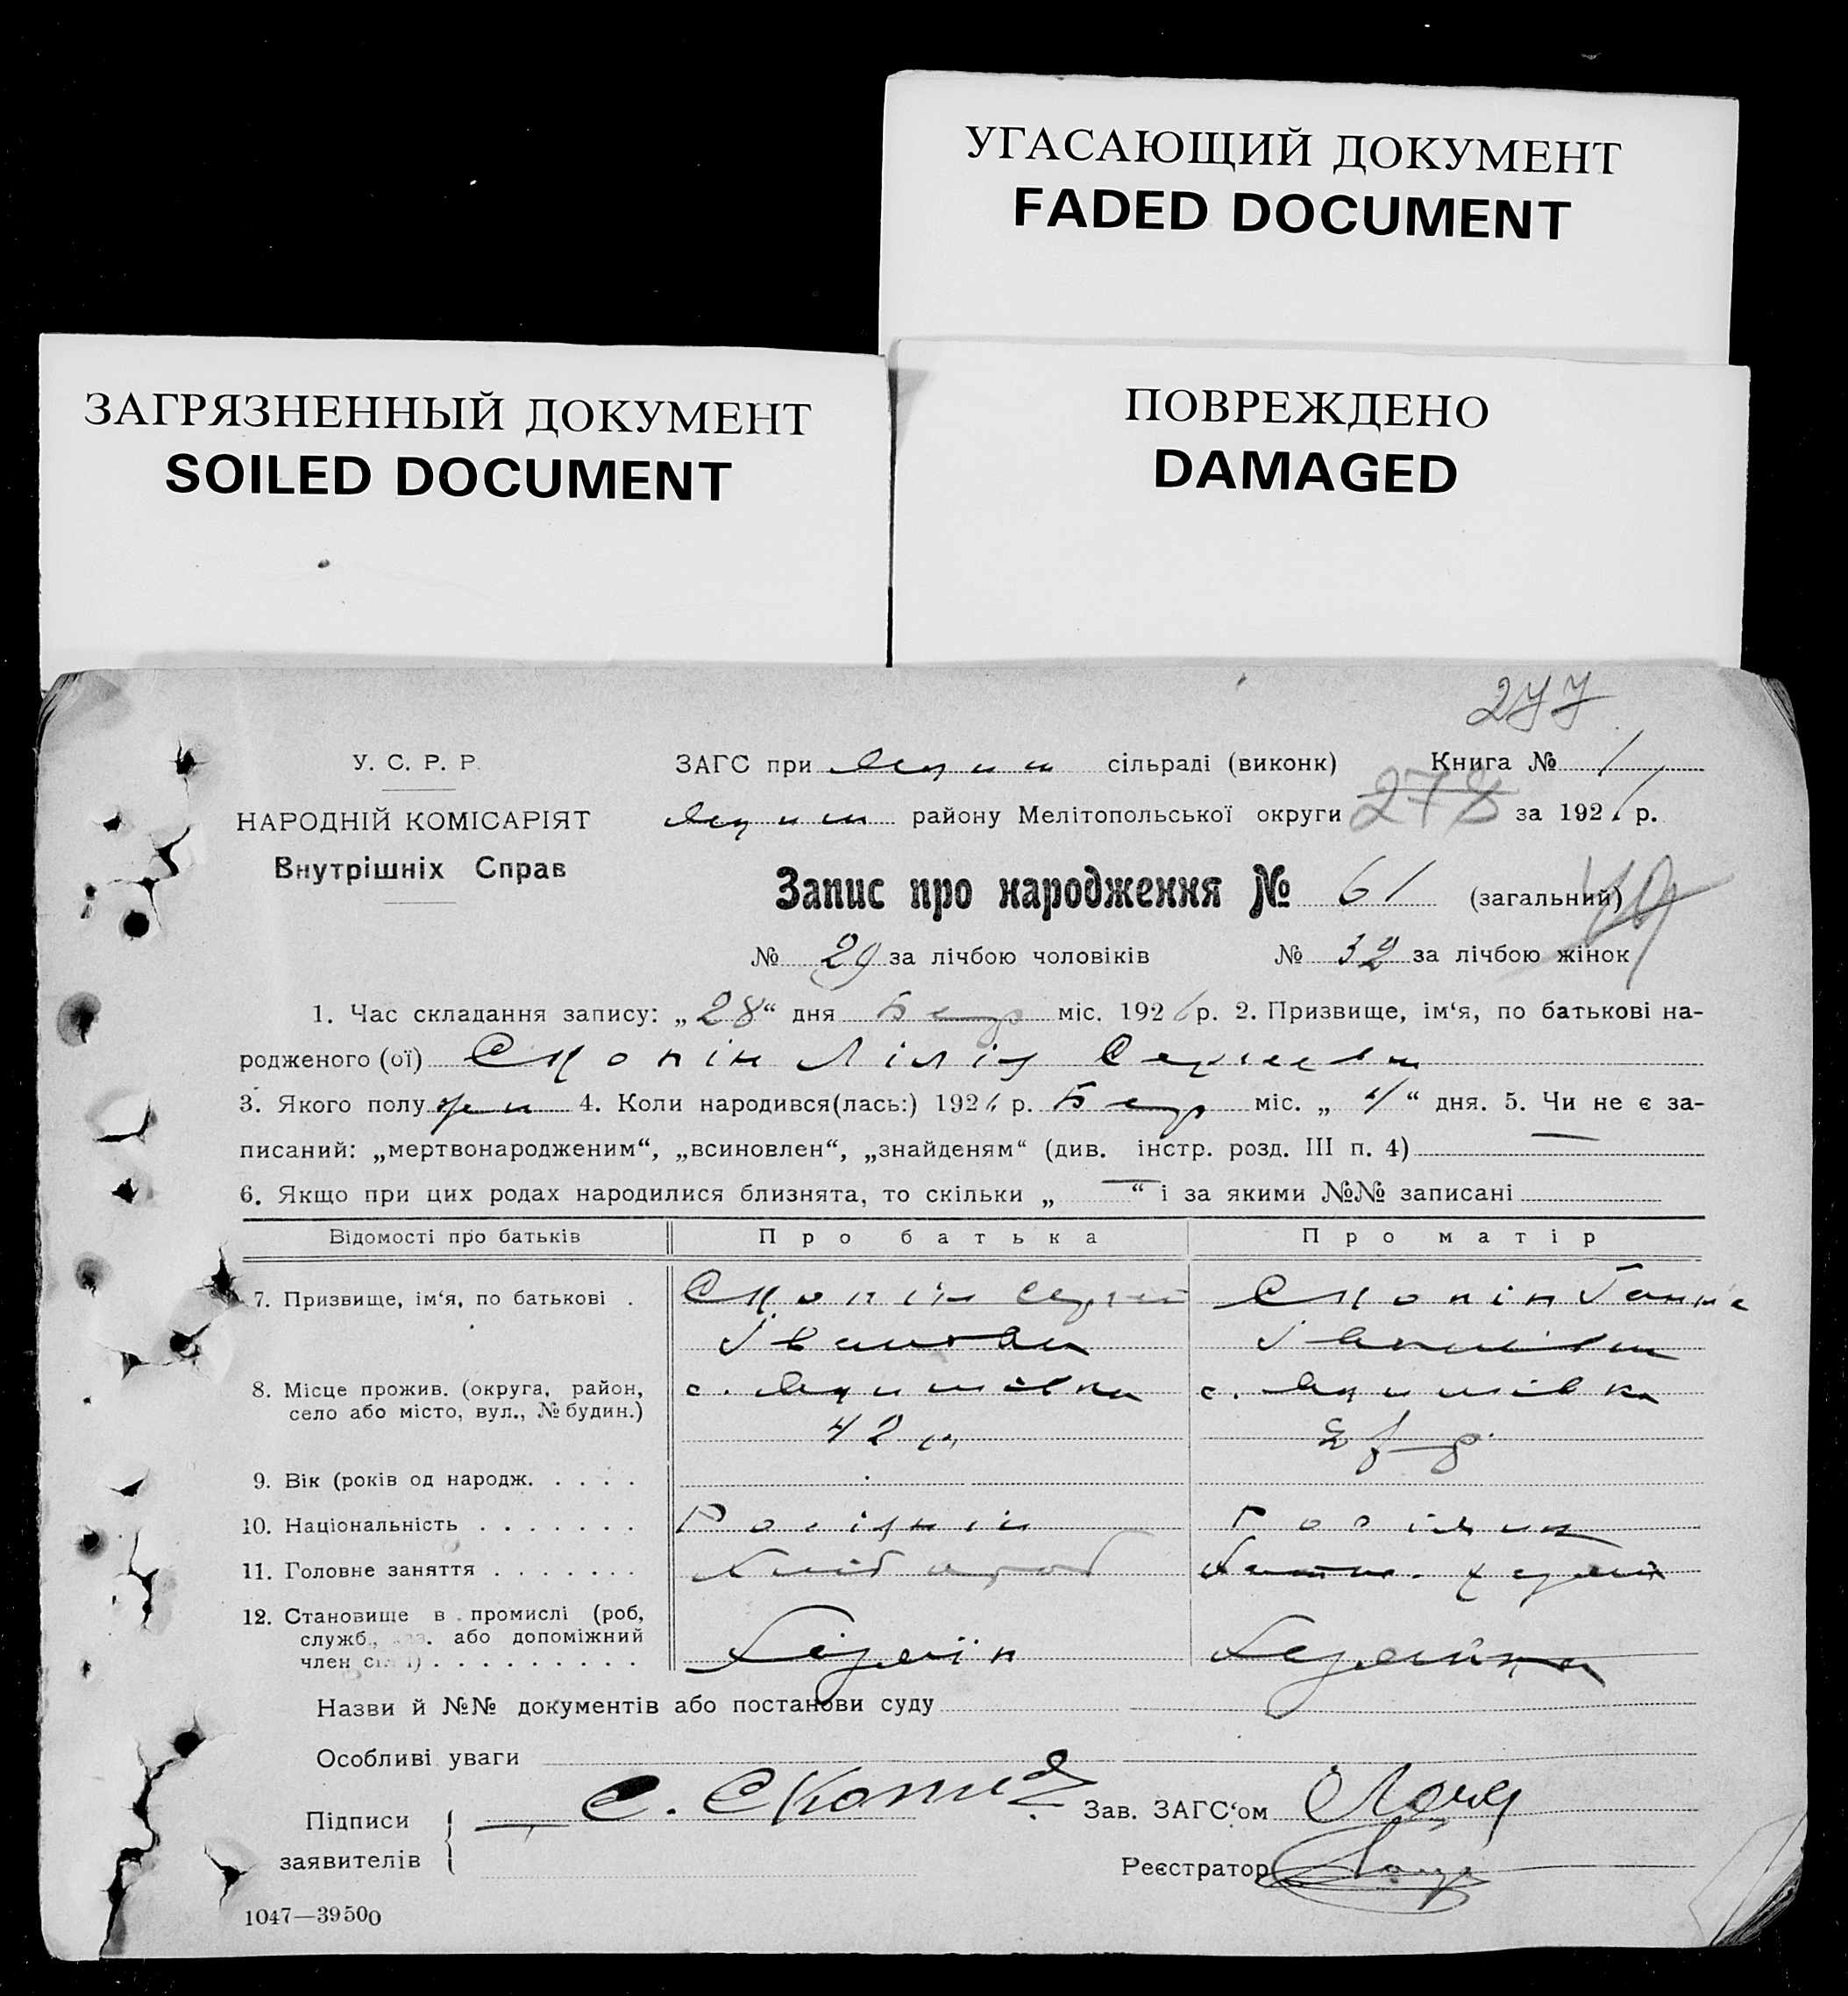 УГАСАЮЩИЙ ДОКУМЕНТ
FADED DOCUMENT
ЗАГРЯЗНЕННЫЙ ДОКУМЕНТ
SOILED DOCUMENT
ПОВРЕЖДЕНО
DAMAGED
277
У. С. Р. Р.
НАРОДНІЙ КОМІСАРІЯТ
Внутрішніх Справ
ЗАГС при сільраді (виконк) Книга № 1
району Мелітопольської округи 278 за 1926 р.
Запис про народження № 61 (загальний)
№ 29 за лічбою чоловіків № 32 за лічбою жінок
1. Час складання запису: „28“ дня міс. 1926 р. 2. Призвище, ім‘я, по батькові на-
родженого (ої) Скопін Лілія
3. Якого полу жін 4. Коли народився(лась:) 1926 р. міс. „4“ дня. 5. Чи не є за-
писаний: „мертвонародженим“, „всиновлен“, „знайденям“ (див. інстр. розд. III п. 4) —
6. Якщо при цих родах народилися близнята, то скільки „—“ і за якими №№ записані
Відомості про батьків Про батька Про матір
7. Призвище, ім‘я, по батькові . Скопін Сергій Скопін Ганна
Іванович Іванівна
8. Місце прожив. (округа, район, с. Якимівка с. Якимівка
село або місто, вул., № будин.)
42
9. Вік (років од народж. . . . .
10. Національність . . . . . . .
11. Головне заняття . . . . . . . Хлібороб
12. Становище в промислі (роб,
служб., або допоміжний
член сім‘ї) . . . . . . . . . Хазяїн Хазяйка
Назви й №№ документів або постанови суду
Особливі уваги
Підписи С. Скопин Зав. ЗАГС‘ом
заявителів Реєстратор
1047—39500